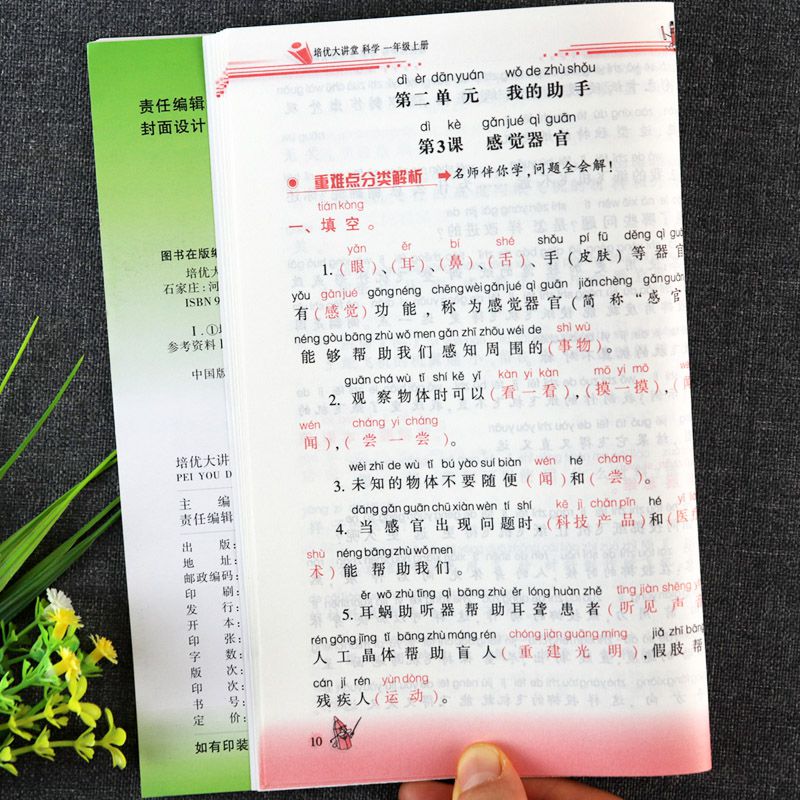 培优大讲堂 科学 一年级上册
dì èr dān yuán wǒ de zhù shǒu
第二单元 我的助手
dì kè gǎn jué qì guān
第3课 感觉器官
重难点分类解析 名师伴你学,问题全会解!
tián kòng
一、填空。
yǎn ěr bí shé shǒu pí fū děng qì guān
1.(眼)、(耳)、(鼻)、(舌)、手(皮肤)等器官
yǒu gǎn jué gōng néng chēng wéi gǎn jué qì guān jiǎn chēng gǎn guān
有(感觉)功能,称为感觉器官(简称“感官
néng gòu bāng zhù wǒ men gǎn zhī zhōu wéi de shì wù
能够帮助我们感知周围的(事物)。
guān chá wù tǐ shí kě yǐ kàn yi kàn mō yi mō
2.观察物体时可以(看一看),(摸一摸),(闻
wén cháng yi cháng
闻),(尝一尝)。
wèi zhī de wù tǐ bú yào suí biàn wén hé cháng
3.未知的物体不要随便(闻)和(尝)。
dāng gǎn guān chū xiàn wèn tí shí kē jì chǎn pǐn hé
4.当感官出现问题时,(科技产品)和(医
shù néng bāng zhù wǒ men
术)能帮助我们。
ěr wō zhù tīng qì bāng zhù ěr lóng huàn zhě tīng jiàn shēng
5.耳蜗助听器帮助耳聋患者(听见声
rén gōng jīng tǐ bāng zhù máng rén chóng jiàn guāng míng jiǎ zhī bāng
人工晶体帮助盲人(重建光明),假肢帮
cán jí rén yùn dòng
残疾人(运动)。
10
责任编辑
封面设计
图书在版编
培优大
石家庄:河
ISBN 9
Ⅰ.①培
参考资料
中国版
培优大讲
PEI YOU D
主 编
责任编辑
出 版:
地 址:
邮政编码:
印 刷:
发 行:
开 本:
印 张:
字 数:
版 次:
印 次:
书 号:
定 价:
如有印装